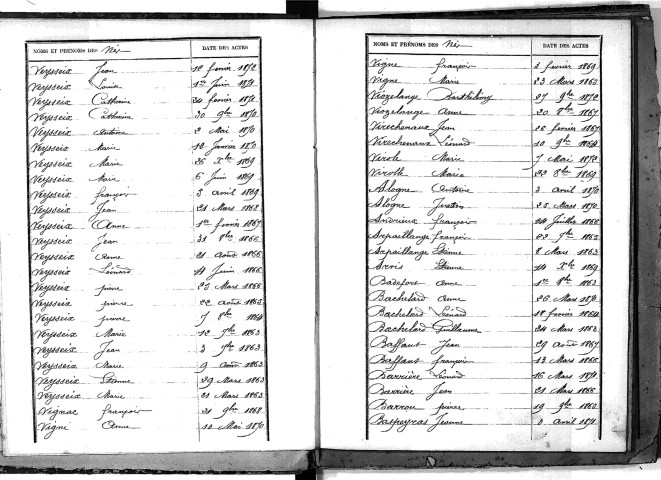 NOMS ET PRÉNOMS DES Nés DATE DES ACTES
Veysseix Jean 12 février 1872
Veysseix Louise 1er Juin 1871
Veysseix Catherine 24 février 1871
Veysseix Catherine 30 9bre 1870
Veysseix Antoine 2 Mai 1870
Veysseix Marie 12 Janvier 1870
Veysseix Marie 26 Xbre 1869
Veysseix Marie 6 Juin 1869
Veysseix françois 5 avril 1869
Veysseix Jean 21 Mars 1868
Veysseix Anne 1er février 1867
Veysseix Jean 31 8bre 1866
Veysseix Anne 21 Août 1866
Veysseix Léonard 11 Juin 1866
Veysseix pierre 23 Mars 1866
Veysseix pierre 22 août 1865
Veysseix pierre 7 8bre 1864
Veysseix Marie 12 9bre 1863
Veysseix Jean 3 9bre 1863
Veysseix Marie 9 Août 1863
Veysseix Etienne 29 Mars 1863
Veysseix Marie 21 Mars 1863
Vignac françois 21 9bre 1868
Vigne Anne 10 Mai 1870
NOMS ET PRÉNOMS DES Nés DATE DES ACTES
Vigne françois 3 février 1869
Vigne Marie 23 Mars 1863
Viozelange Barthélémy 27 9bre 1872
Viozelange Anne 20 8bre 1867
Virechenaux Jean 25 février 1867
Virechenaux Léonard 10 9bre 1864
Virole Marie 7 Mai 1872
Virolle Marie 23 8bre 1869
Alogne Antoine 3 avril 1870
Alogne Justin 25 Mars 1870
Andrieux françois 24 Juillet 1866
Arpaillange françois 22 9bre 1865
Arpaillange Etienne 8 Mars 1863
Arvis Etienne 14 Xbre 1869
Badefort Anne 1er 8bre 1863
Bachelard Anne 26 Mars 1871
Bachelard Léonard 18 février 1864
Bachelard Guillaume 24 Mars 1863
Baffaut Jean 29 Août 1867
Baffaut françois 13 Mars 1866
Barrière Léonard 16 Mars 1871
Barrière Jean 21 Mars 1866
Barrou pierre 19 9bre 1862
Baspeyras Jeanne avril 1871